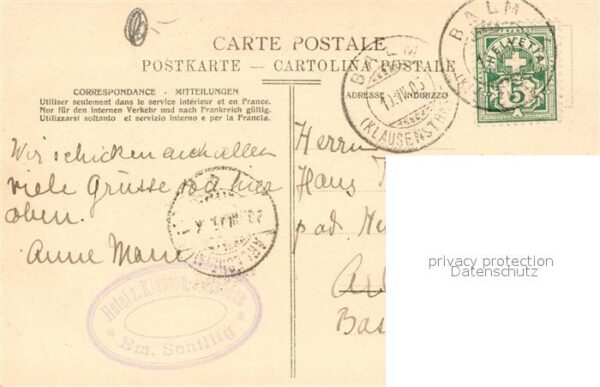 CARTE POSTALE
POSTKARTE — CARTOLINA POSTALE
CORRESPONDANCE - MITTEILUNGEN
Utiliser seulement dans le service intérieur et en France.
Nur für den internen Verkehr und nach Frankreich gültig.
Utilizzarsi soltanto el servizio interno e per la Francia.
ADRESSE
INDIRIZZO
BALM
(KLAUSENSTR.)
BALM
HELVETIA
5
FRANCO
Wir schicken auch allen
viele Grüsse von hier
oben.
Anne Marie
Herrn
Hans
pad.
Bas
Hotel z. Klausen
* Em. Schillig *
privacy protection
Datenschutz